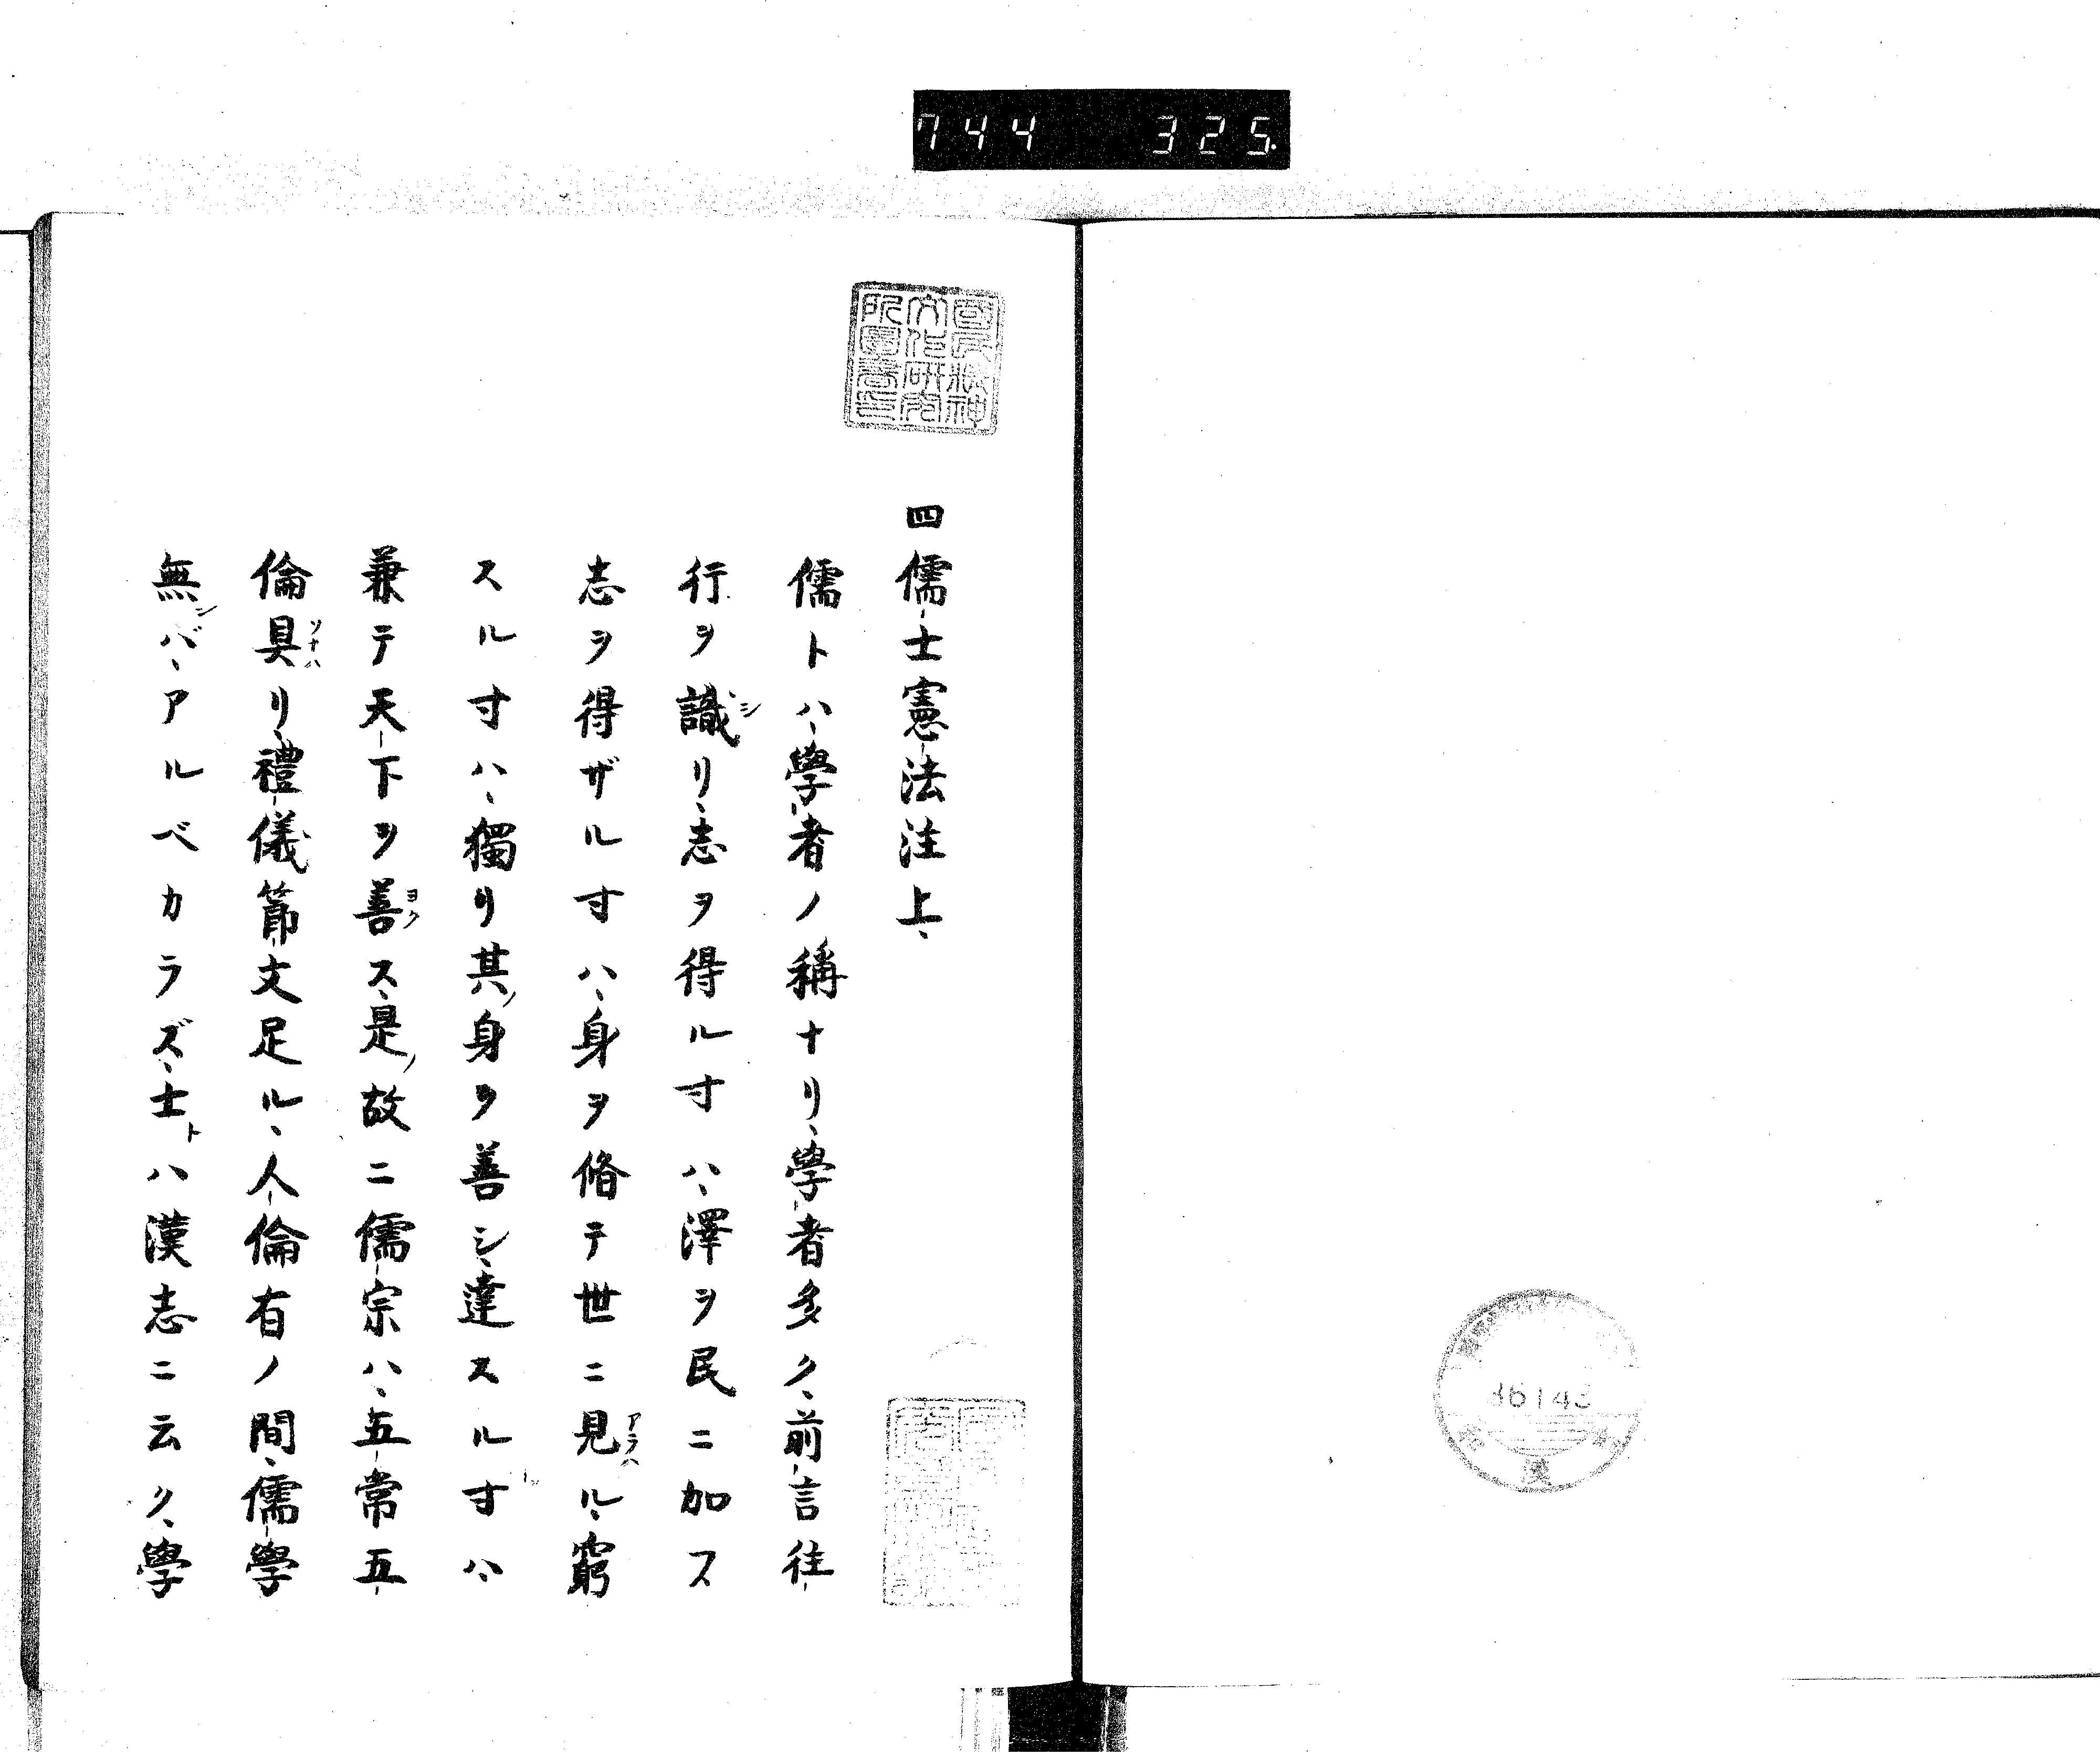 744 325.
國民精神
文化研究
所圖書印
四儒士憲法注上、
儒トハ學者ノ稱ナリ、學者多ク、前言往
行ヲ識リ、志ヲ得ル寸ハ、澤ヲ民ニ加ス
志ヲ得ザル寸ハ、身ヲ脩テ世ニ見ル、窮
スル寸ハ、獨リ其ノ身ヲ善シ、達スル寸ハ、
兼テ天下ヲ善ス、是ノ故ニ儒宗ハ、五常五
倫具リ、禮儀節文足ル、人倫有ノ間、儒學
無シバ、アルベカラズ、士トハ漢志ニ云ク、學